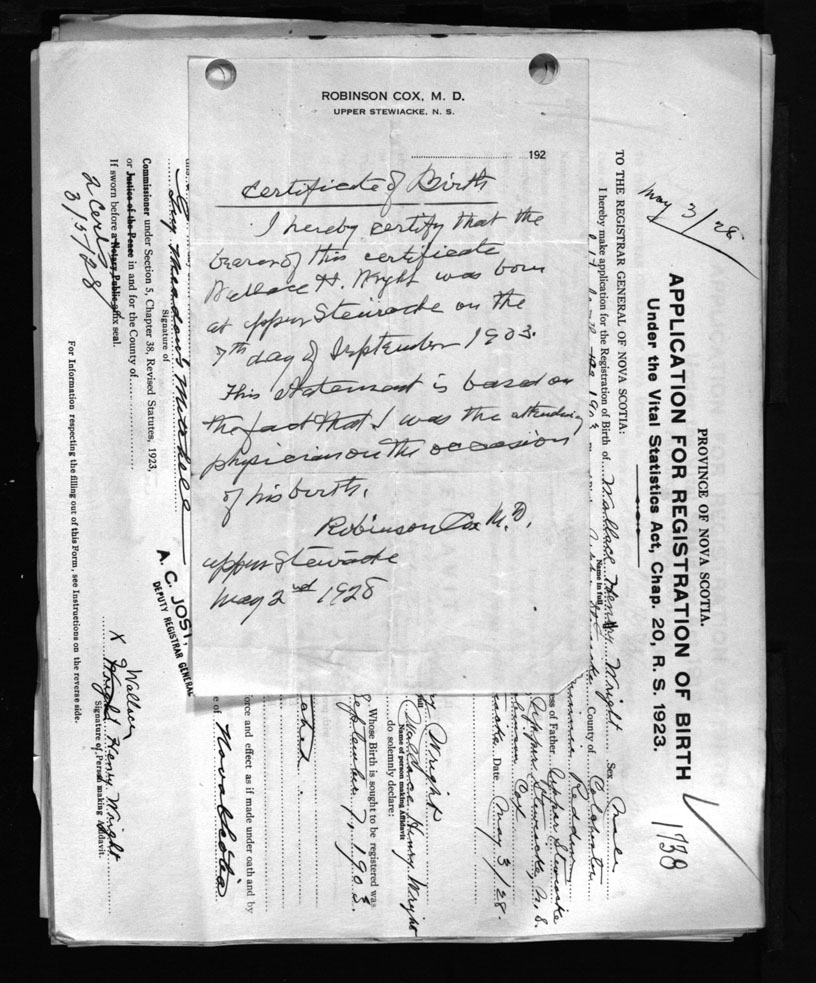 ROBINSON COX, M. D.
UPPER STEWIACKE, N. S.
192
Certificate of Birth
I hereby certify that the
bearer of this certificate
Wallace H. Wright was born
at Upper Stewiacke on the
7th day of September 1903.
This statement is based on
the fact that I was the attending
physician on the occasion
of his birth.
Robinson Cox M.D.
Upper Stewiacke
May 2nd 1928
May 3/28
PROVINCE OF NOVA SCOTIA.
APPLICATION FOR REGISTRATION OF BIRTH
Under the Vital Statistics Act, Chap. 20, R. S. 1923.
1738
TO THE REGISTRAR GENERAL OF NOVA SCOTIA:
I hereby make application for the Registration of Birth of Wallace Henry Wright Sex Male
Name in full
1903 County of Colchester
ess of Father Upper Stewiacke
Upper Stewiacke, N. S.
Cox
Date May 3/28.
Wright
Wallace Henry Wright
Name of person making Affidavit
do solemnly declare:
Whose Birth is sought to be registered was
September 7, 1903.
orce and effect as if made under oath and by
e of Nova Scotia
A. C. JOST,
DEPUTY REGISTRAR GENERAL
Guy Meadows Mitchell
Signature of
Commissioner under Section 5, Chapter 38, Revised Statutes, 1923,
or Justice of the Peace in and for the County of
If sworn before a Notary Public affix seal.
2 Certs
3/5/28
X Wallace
Wright Henry Wright
Signature of Person making Affidavit.
For Information respecting the filling out of this Form, see Instructions on the reverse side.